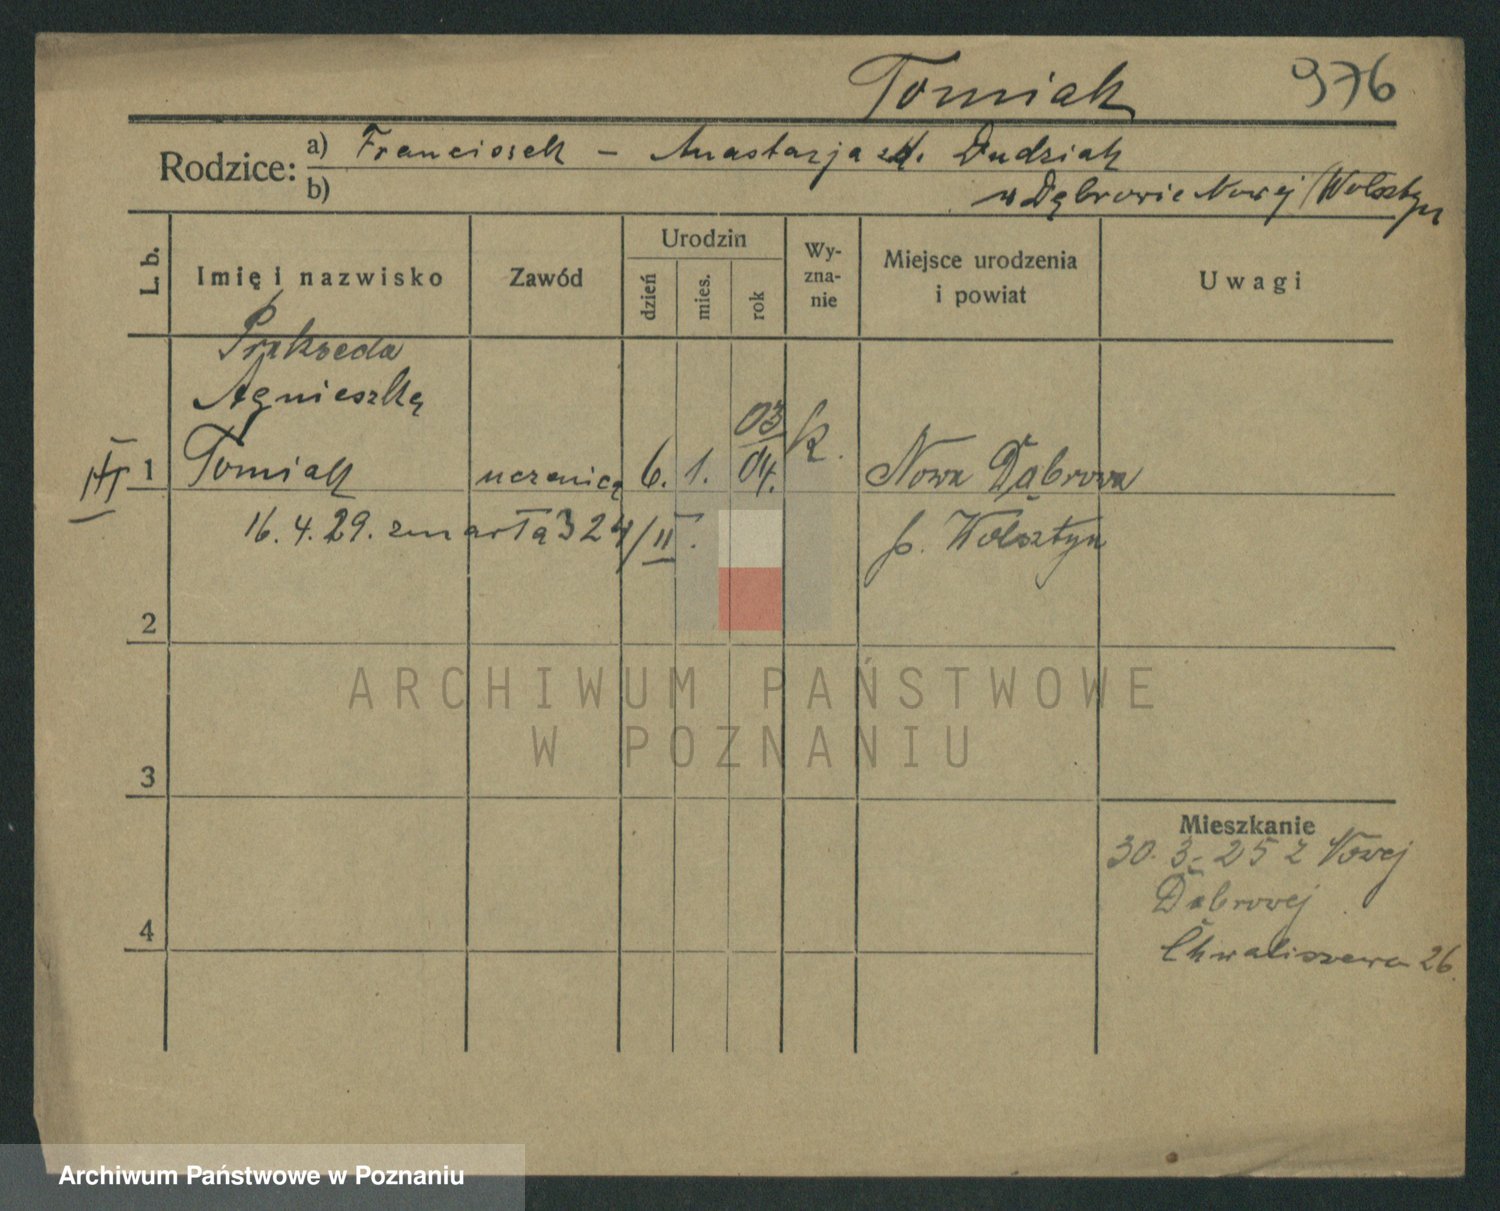 Tomiak 976
Rodzice: a) Franciszek – Anastazja zd. Dudziak
b) w Dąbrowie Nowej /Wolsztyn
L. b.
Imię i nazwisko
Zawód
Urodzin
dzień
mies.
rok
Wy-
zna-
nie
Miejsce urodzenia
i powiat
Uwagi
Prakseda
Agnieszka
1 Tomiak uczenica 6. 1. 03/04. k. Nowa Dąbrowa
16. 4. 29. zmarła 324/II. p. Wolsztyn
2
3
4
Mieszkanie
30. 3. 25 z Nowej
Dąbrowej
Chwaliszewo 26.
ARCHIWUM PAŃSTWOWE
W POZNANIU
Archiwum Państwowe w Poznaniu